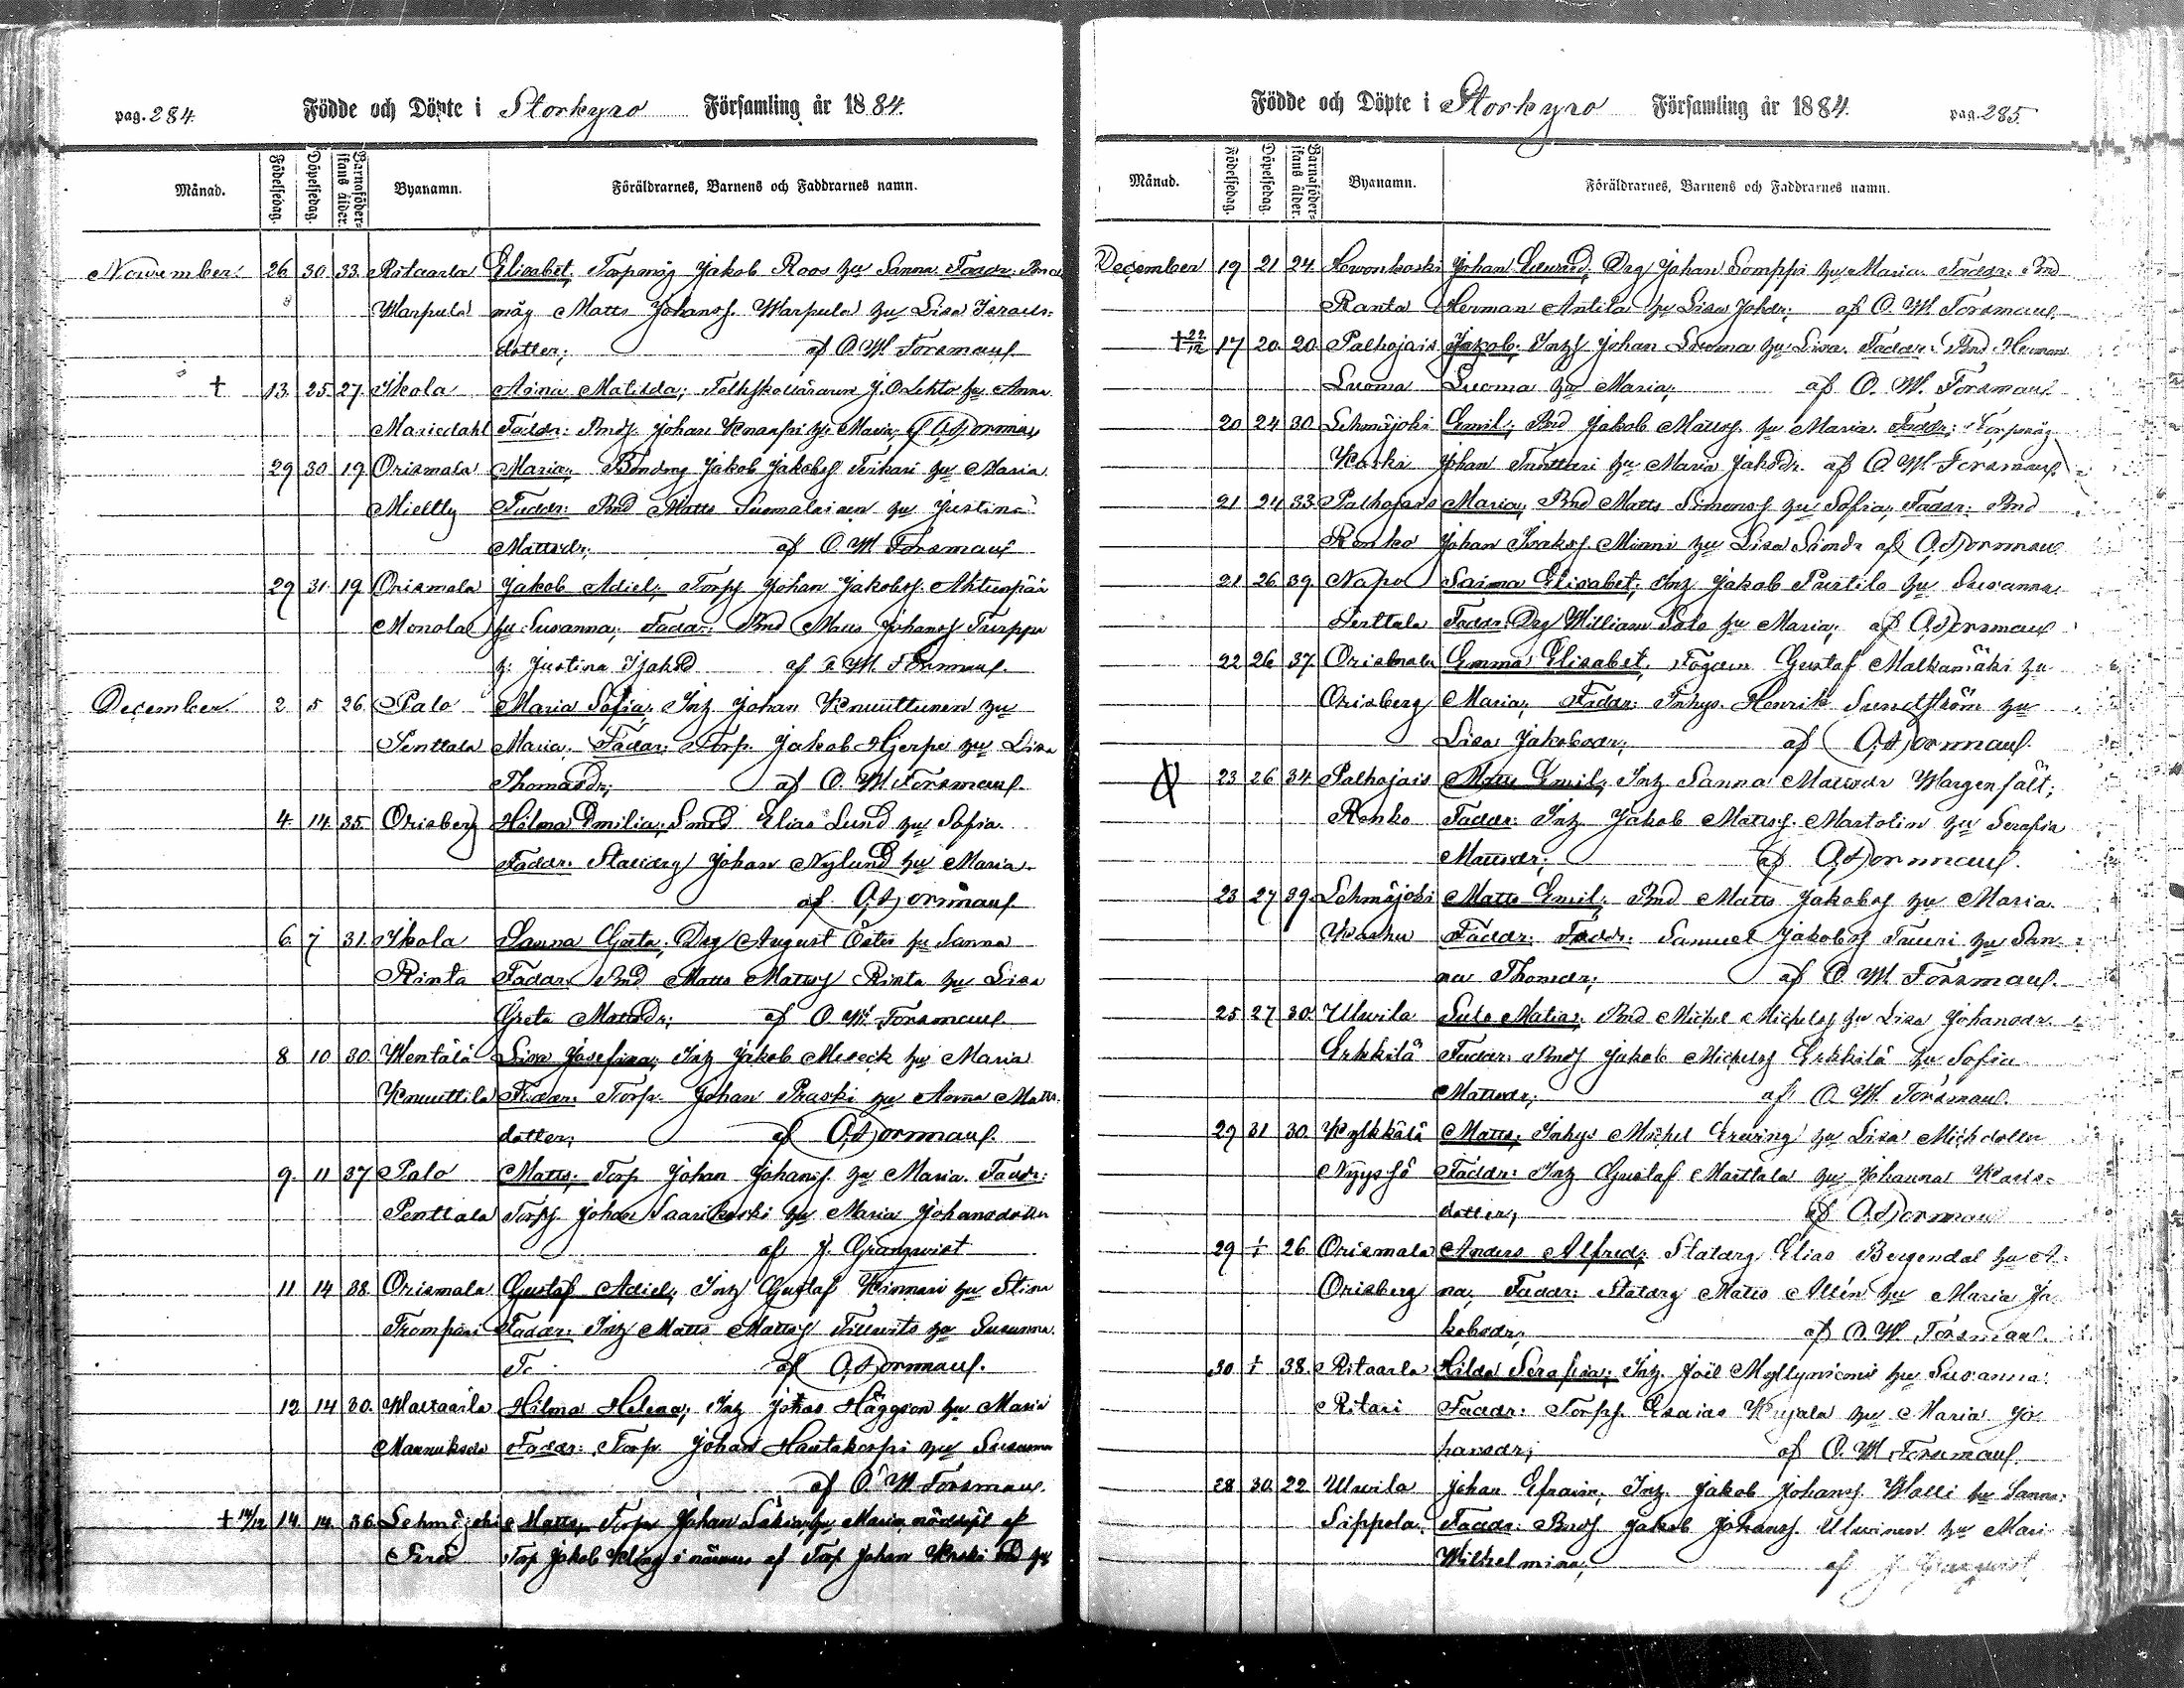 pag. 284.
Födde och Döpte i Storkyro Församling år 1884.
Månad. Födelsedag. Döpelsedag. Barnaföderskans ålder. Byanamn. Föräldrarnes, Barnens och Faddrarnes namn.
November 26 30 33 Ritaarla Elisabet, Torpmåg Jakob Roos hu Sanna. Faddr: Bond
Warpula måg Matts Johansf. Warpula hu Lisa Israels-
dotter; af O. W. Forsman
† 13 25 27 Ikola Aina Matilda; Folkskolläraren J. O. Lehto hu Anna
Mariedahl Faddr: Johan hu Maria,
29 30 19 Orismala Maria; Bondmg Jakob Jakobsf hu Maria
Mieltty Faddr: Bnd Matts Suomalainen hu Justina
Mattsdr; af O. W. Forsman
29 31 19 Orismala Jakob Adiel; Torp Johan Jakobsf.
Monola hu Susanna; Faddr: Bnd Matts Johansf
h: Justina af O. W. Forsman
December 2 5 26 Palo Maria Sofia; Inh Johan Knuuttunen hu
Penttala Maria. Faddr: Torp. Jakob Hjerpe hu Lisa
Thomasdr; af O. W. Forsman
4 14 35 Orisberg Hilma Emilia; Smed Elias Lund hu Sofia.
Faddr. Statdrg Johan Nylund hu Maria
af O. W. Forsman
6 7 31 Ikola Sanna Greta; Drg August Öster hu Sanna
Rinta Faddr. Bnd Matts Mattsf Rinta hu Lisa
Greta Mattsdr; af O. W. Forsman
8 10 30 Wentälä Lisa Josefina; Inh Jakob hu Maria
Knuuttila Faddr. Torp. Johan hu Anna Matts
dotter; af O. W. Forsman
9 11 37 Palo Matts; Torp Johan Johansf. hu Maria. Faddr:
Penttala Torp. Johan Saarikoski hu Maria Johansdotter
af J. Granqvist
11 14 38 Orismala Gustaf Adiel; Inh Gustaf hu Stina
Trompari Faddr: Inh Matts Mattsf hu Susanna.
af O. W. Forsman
12 14 30 Waltaarila Hilma Helena; Inh Häggson hu Maria
Mannuksela Faddr: Torp. Johan Hautakorpi hu Susanna
af O. W. Forsman
† 14/12 14 14 36 Lehmäjoki Matts, Torp Johan hu Maria, nöddöpt af
Torp Jakob i närwaro af Torp Johan Koski hu
Födde och Döpte i Storkyro Församling år 1884. pag. 285.
Månad. Födelsedag. Döpelsedag. Barnaföderskans ålder. Byanamn. Föräldrarnes, Barnens och Faddrarnes namn.
December 19 21 24 Johan Edward, Drg Johan Somppi hu Maria. Faddr: Bnd
Ranta Herman Antila hu Lisa Johdr; af O. W. Forsman
† 22/12 17 20 20 Palhojais Jakob; Johan Luoma hu Lisa. Faddr: Bnd Herman
Luoma Luoma hu Maria; af O. W. Forsman
20 24 30 Lehmäjoki Emil; Bnd Jakob Mattsf. hu Maria. Faddr: Torpmåg
Koski Johan hu Maria Jakobdr. af O. W. Forsman
21 24 33 Palhojais Maria; Bnd Matts Simonsf hu Sofia; Faddr: Bnd
Renko Johan Minni hu Lisa Simdr af O. W. Forsman
21 26 39 Napo Saima Elisabet; Inh Jakob Puutila hu Susanna
Perttala Faddr: Drg William Salo hu Maria; af O. W. Forsman
22 26 37 Orismala Emma Elisabet, Gustaf Malkamäki hu
Orisberg Maria; Faddr: Inhys. Henrik Sundström hu
Lisa Jakobsdr; af O. W. Forsman
23 26 34 Palhojais Matts Emil; Inh Sanna Mattsdr Wargenfält;
Renko Faddr: Inh Jakob Mattsf. Martolin hu Serafia
Mattsdr; af O. W. Forsman
23 27 39 Lehmäjoki Matts Emil; Bnd Matts Jakobsf hu Maria.
Faddr: Faddr: Samuel Jakobsf Tuuri hu San-
na Thomdr; af O. W. Forsman
25 27 30 Ulwila Matias; Bnd Michel Michelsf hu Lisa Johansdr.
Erkkilä Faddr: Jakob Michelsf Erkkilä hu Sofia
Mattsdr; af O. W. Forsman
29 31 30 Kylkkälä Matts; Inhys Michel Erwing hu Lisa Michdotter
Nyyssö Faddr: Inh Gustaf Marttala hu Johanna
dotter; af O. W. Forsman
29 1/1 26 Orismala Anders Alfred; Statdrg Elias Bergendal hu An-
Orisberg na; Faddr: Statdrg Matts Allén hu Maria Ja-
kobsdr; af O. W. Forsman
30 1/1 38 Ritaarla Hilda Serafia; Inh. Joël Myllyniemi hu Susanna
Ritari Faddr: Torp. Esaias Kujala hu Maria Jo-
hansdr; af O. W. Forsman
28 30 22 Ulwila Johan Efraim; Inh. Jakob Johansf. Walli hu Sanna.
Säppola Faddr: Jakob Johansf. Ulwinen hu Mari
Wilhelmina; af J. Granqvist